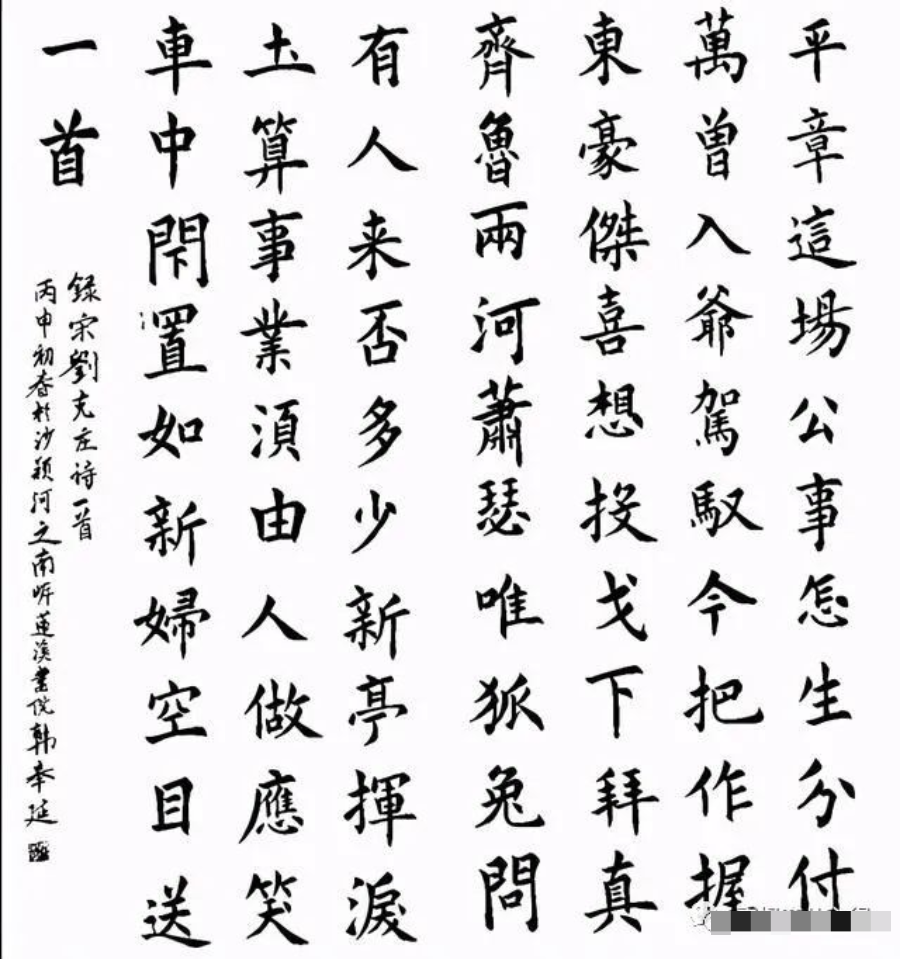 平章這場公事怎生分付
萬曾入爺駕馭今把作握
東豪傑喜想投戈下拜真
齊魯兩河蕭瑟唯狐兔問
有人来否多少新亭揮淚
圡算事業須由人做應笑
車中閇置如新婦空目送
一首
録宋劉克庄诗一首
丙申初春於沙颍河之南蓮溪書院韓奉延